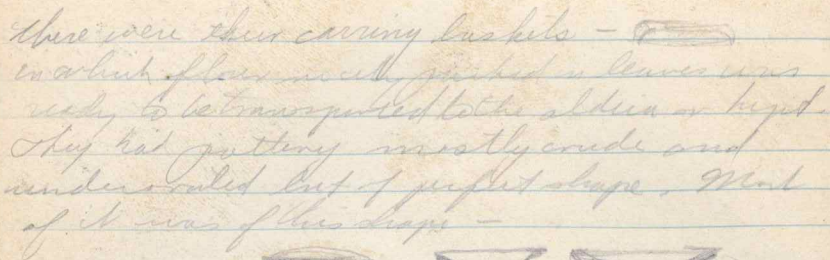 there were their carring baskets -
in which flour nicely packed in leaves was
ready to be transported to the aldeia or
They had pottery mostly crude and
undecorated but of perfect shape. Most
of it was of this shape -